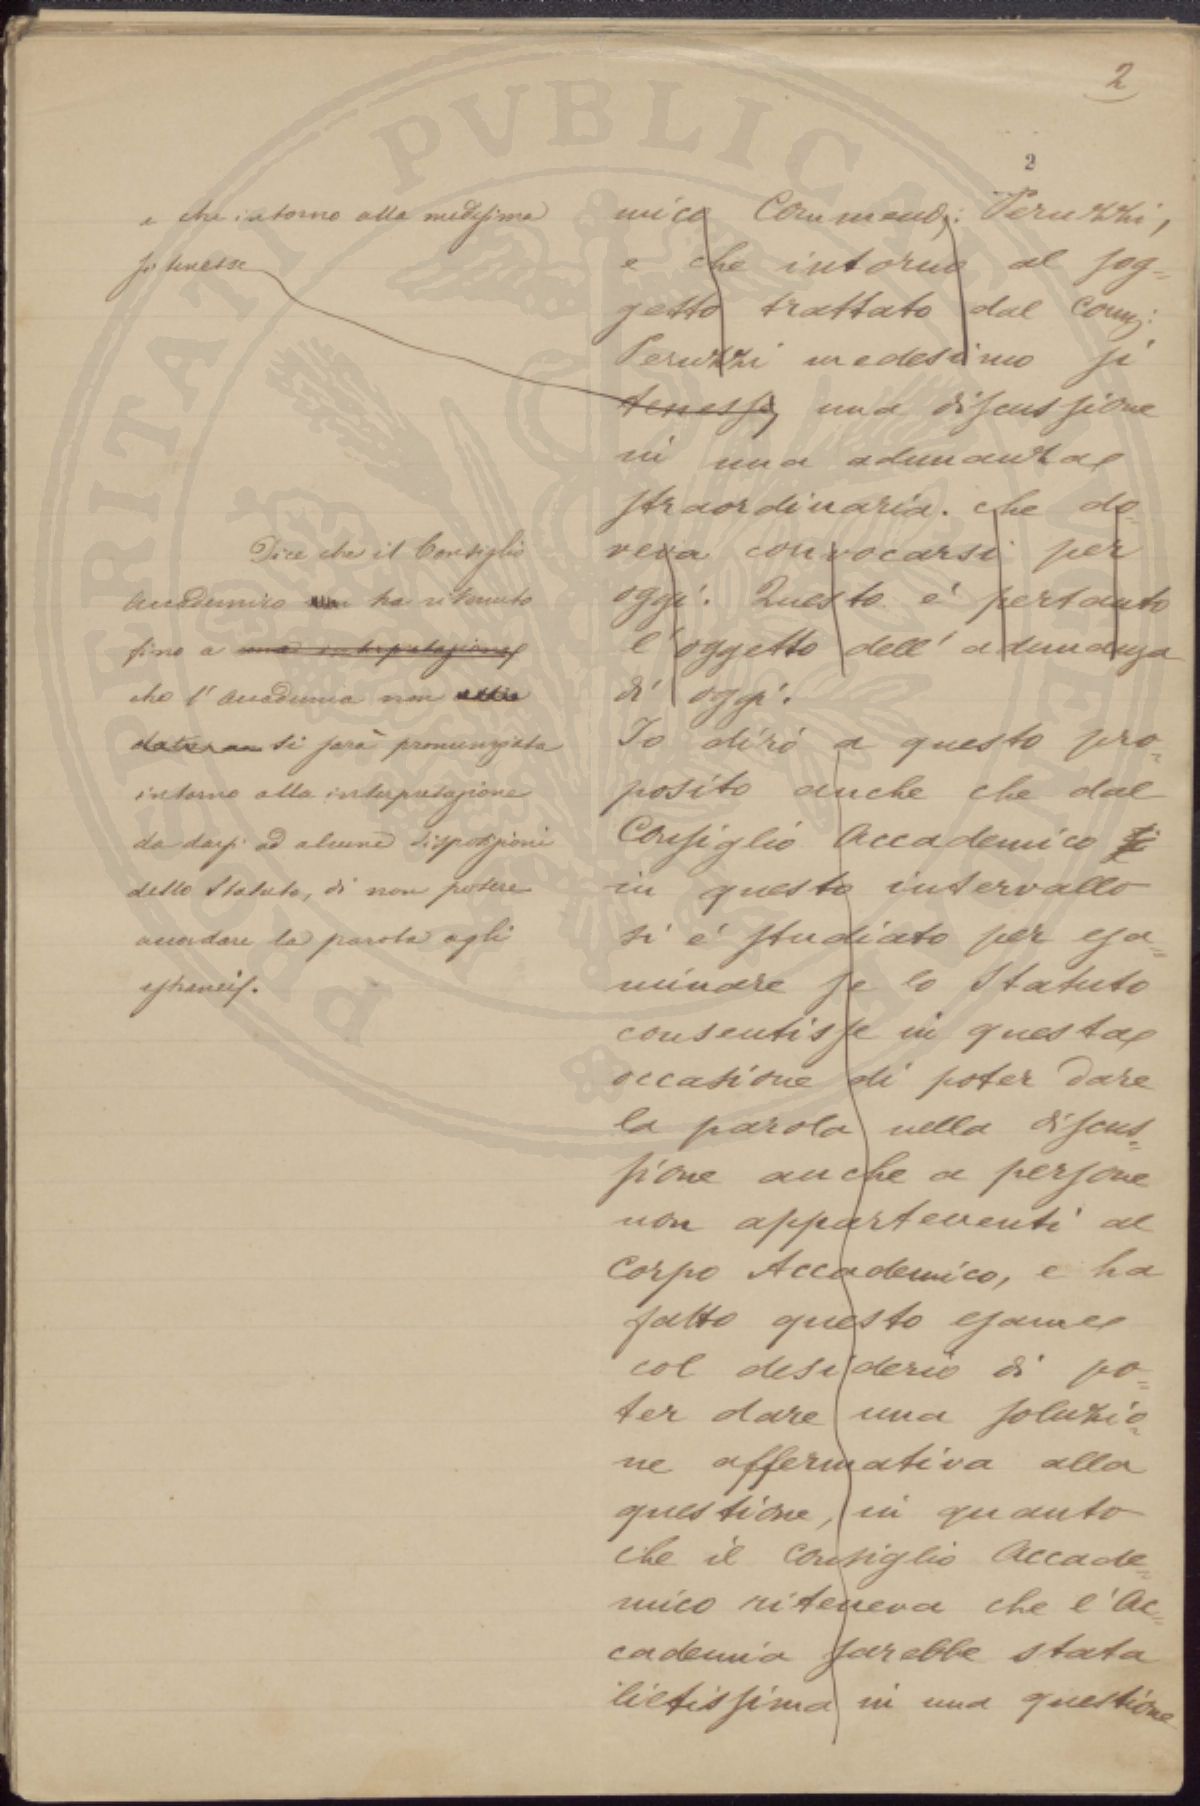 2
2
e che intorno alla medesima
si tenesse
Dice che il Consiglio
Accademico non ha ritenuto
fino a una interpretazione
che l'Accademia non
si sarà pronunziata
intorno alla interpretazione
da darsi ad alcune disposizioni
dello Statuto, di non potere
accordare la parola agli
estranei.
mico Commend: Peruzzi,
e che intorno al sog=
getto trattato dal Comm:
Peruzzi medesimo si
tenesse, una discussione
in una adunanza
straordinaria. che do=
veva convocarsi per
oggi. Questo è pertanto
l'oggetto dell'adunanza
di oggi.
Io dirò a questo pro=
posito anche che dal
Consiglio Accademico si
in questo intervallo
si è studiato per esa=
minare se lo Statuto
consentisse in questa
occasione di poter dare
la parola nella discus=
sione anche a persone
non appartenenti al
Corpo Accademico, e ha
fatto questo esame
col desiderio di po=
ter dare una soluzio=
ne affermativa alla
questione, in quanto
che il Consiglio Accade=
mico riteneva che l'Ac=
cademia sarebbe stata
lietissima in una questione
PROSPERITATI PVBLICAE AVGENDAE